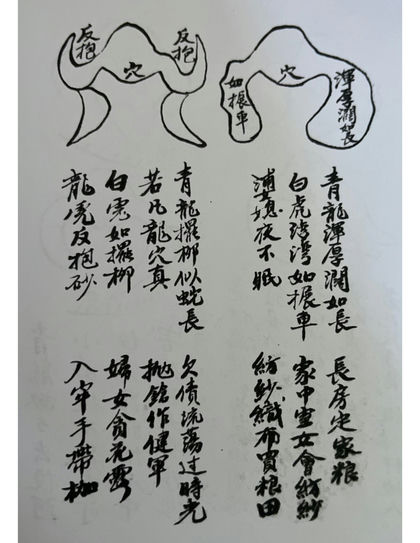 渾厚潤如長
穴
如振車
反抱
穴
反抱
青龍渾厚潤如長
長房定家粮
白虎灣如振車
家中室女會紡紗
媳夜不眠
紡紗織布買粮田
青龍擺柳似蛇長
欠債流蕩过時光
若凡龍穴真
拋鎗作健軍
白虎如擺柳
婦女貪花
龍虎反抱砂
入牢手帶枷